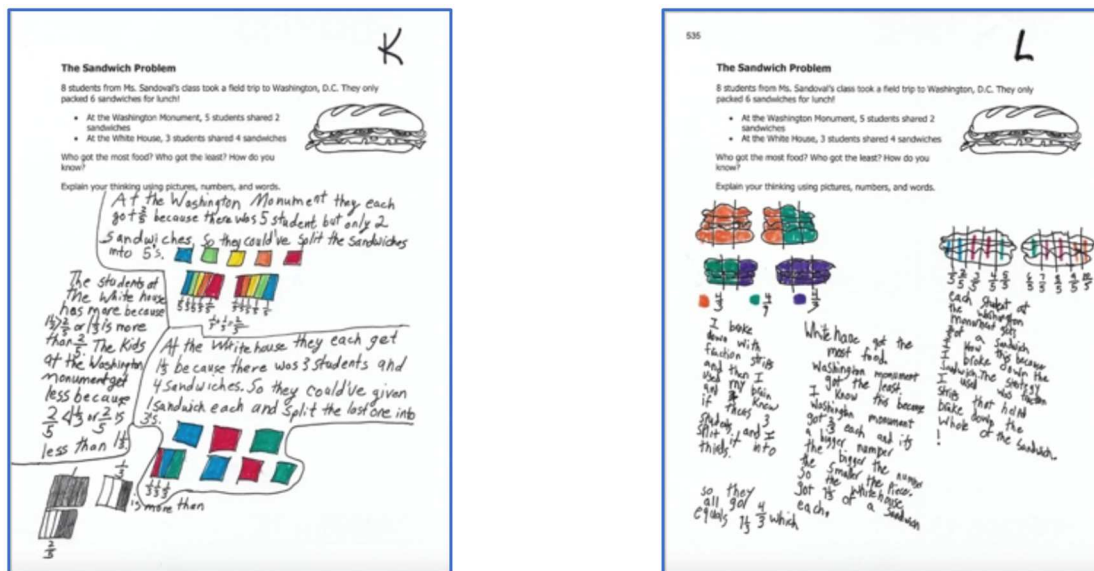 K
The Sandwich Problem
8 students from Ms. Sandoval's class took a field trip to Washington, D.C. They only
packed 6 sandwiches for lunch!
• At the Washington Monument, 5 students shared 2
sandwiches
• At the White House, 3 students shared 4 sandwiches
Who got the most food? Who got the least? How do you
know?
Explain your thinking using pictures, numbers, and words.
At the Washington Monument they each
got 2/5 because there was 5 student but only 2
sandwiches. So they could've split the sandwiches
into 5's.
1/5 1/5 1/5 1/5 1/5 1/5 1/5 1/5 1/5 1/5
1/5 + 1/5 = 2/5
The students at
The White house
has more because
1 1/3 > 2/5 or 1 1/3 is more
than 2/5. The Kids
at the Washington
monument get
less because
2/5 < 1 1/3 or 2/5 is
less than 1 1/3
At the White house they each get
1 1/3 because there was 3 students and
4 sandwiches. So they could've given
1 sandwich each and split the last one into
3's.
1/3 1/3 1/3
1/3
is more than
2/5
535
L
The Sandwich Problem
8 students from Ms. Sandoval's class took a field trip to Washington, D.C. They only
packed 6 sandwiches for lunch!
• At the Washington Monument, 5 students shared 2
sandwiches
• At the White House, 3 students shared 4 sandwiches
Who got the most food? Who got the least? How do you
know?
Explain your thinking using pictures, numbers, and words.
I brake
down with
fraction strips
and then I
used my brain
and I knew
if theres 3
students and I
split it into
thirds.
so they
all got 4/3 which
equals 1 1/3
White house got the
most food.
Washington monument
got the least.
I know this because
Washington monument
got each and its
a bigger number
the bigger the number
the smaller the piece.
so the white house
got 1 1/3 of a sandwich
each.
each student at
the washington
monument gets
a sandwich
this because
I broke down the
sandwich. The
I used was fraction
strips that held
brake down the
whole of the sandwich.
!